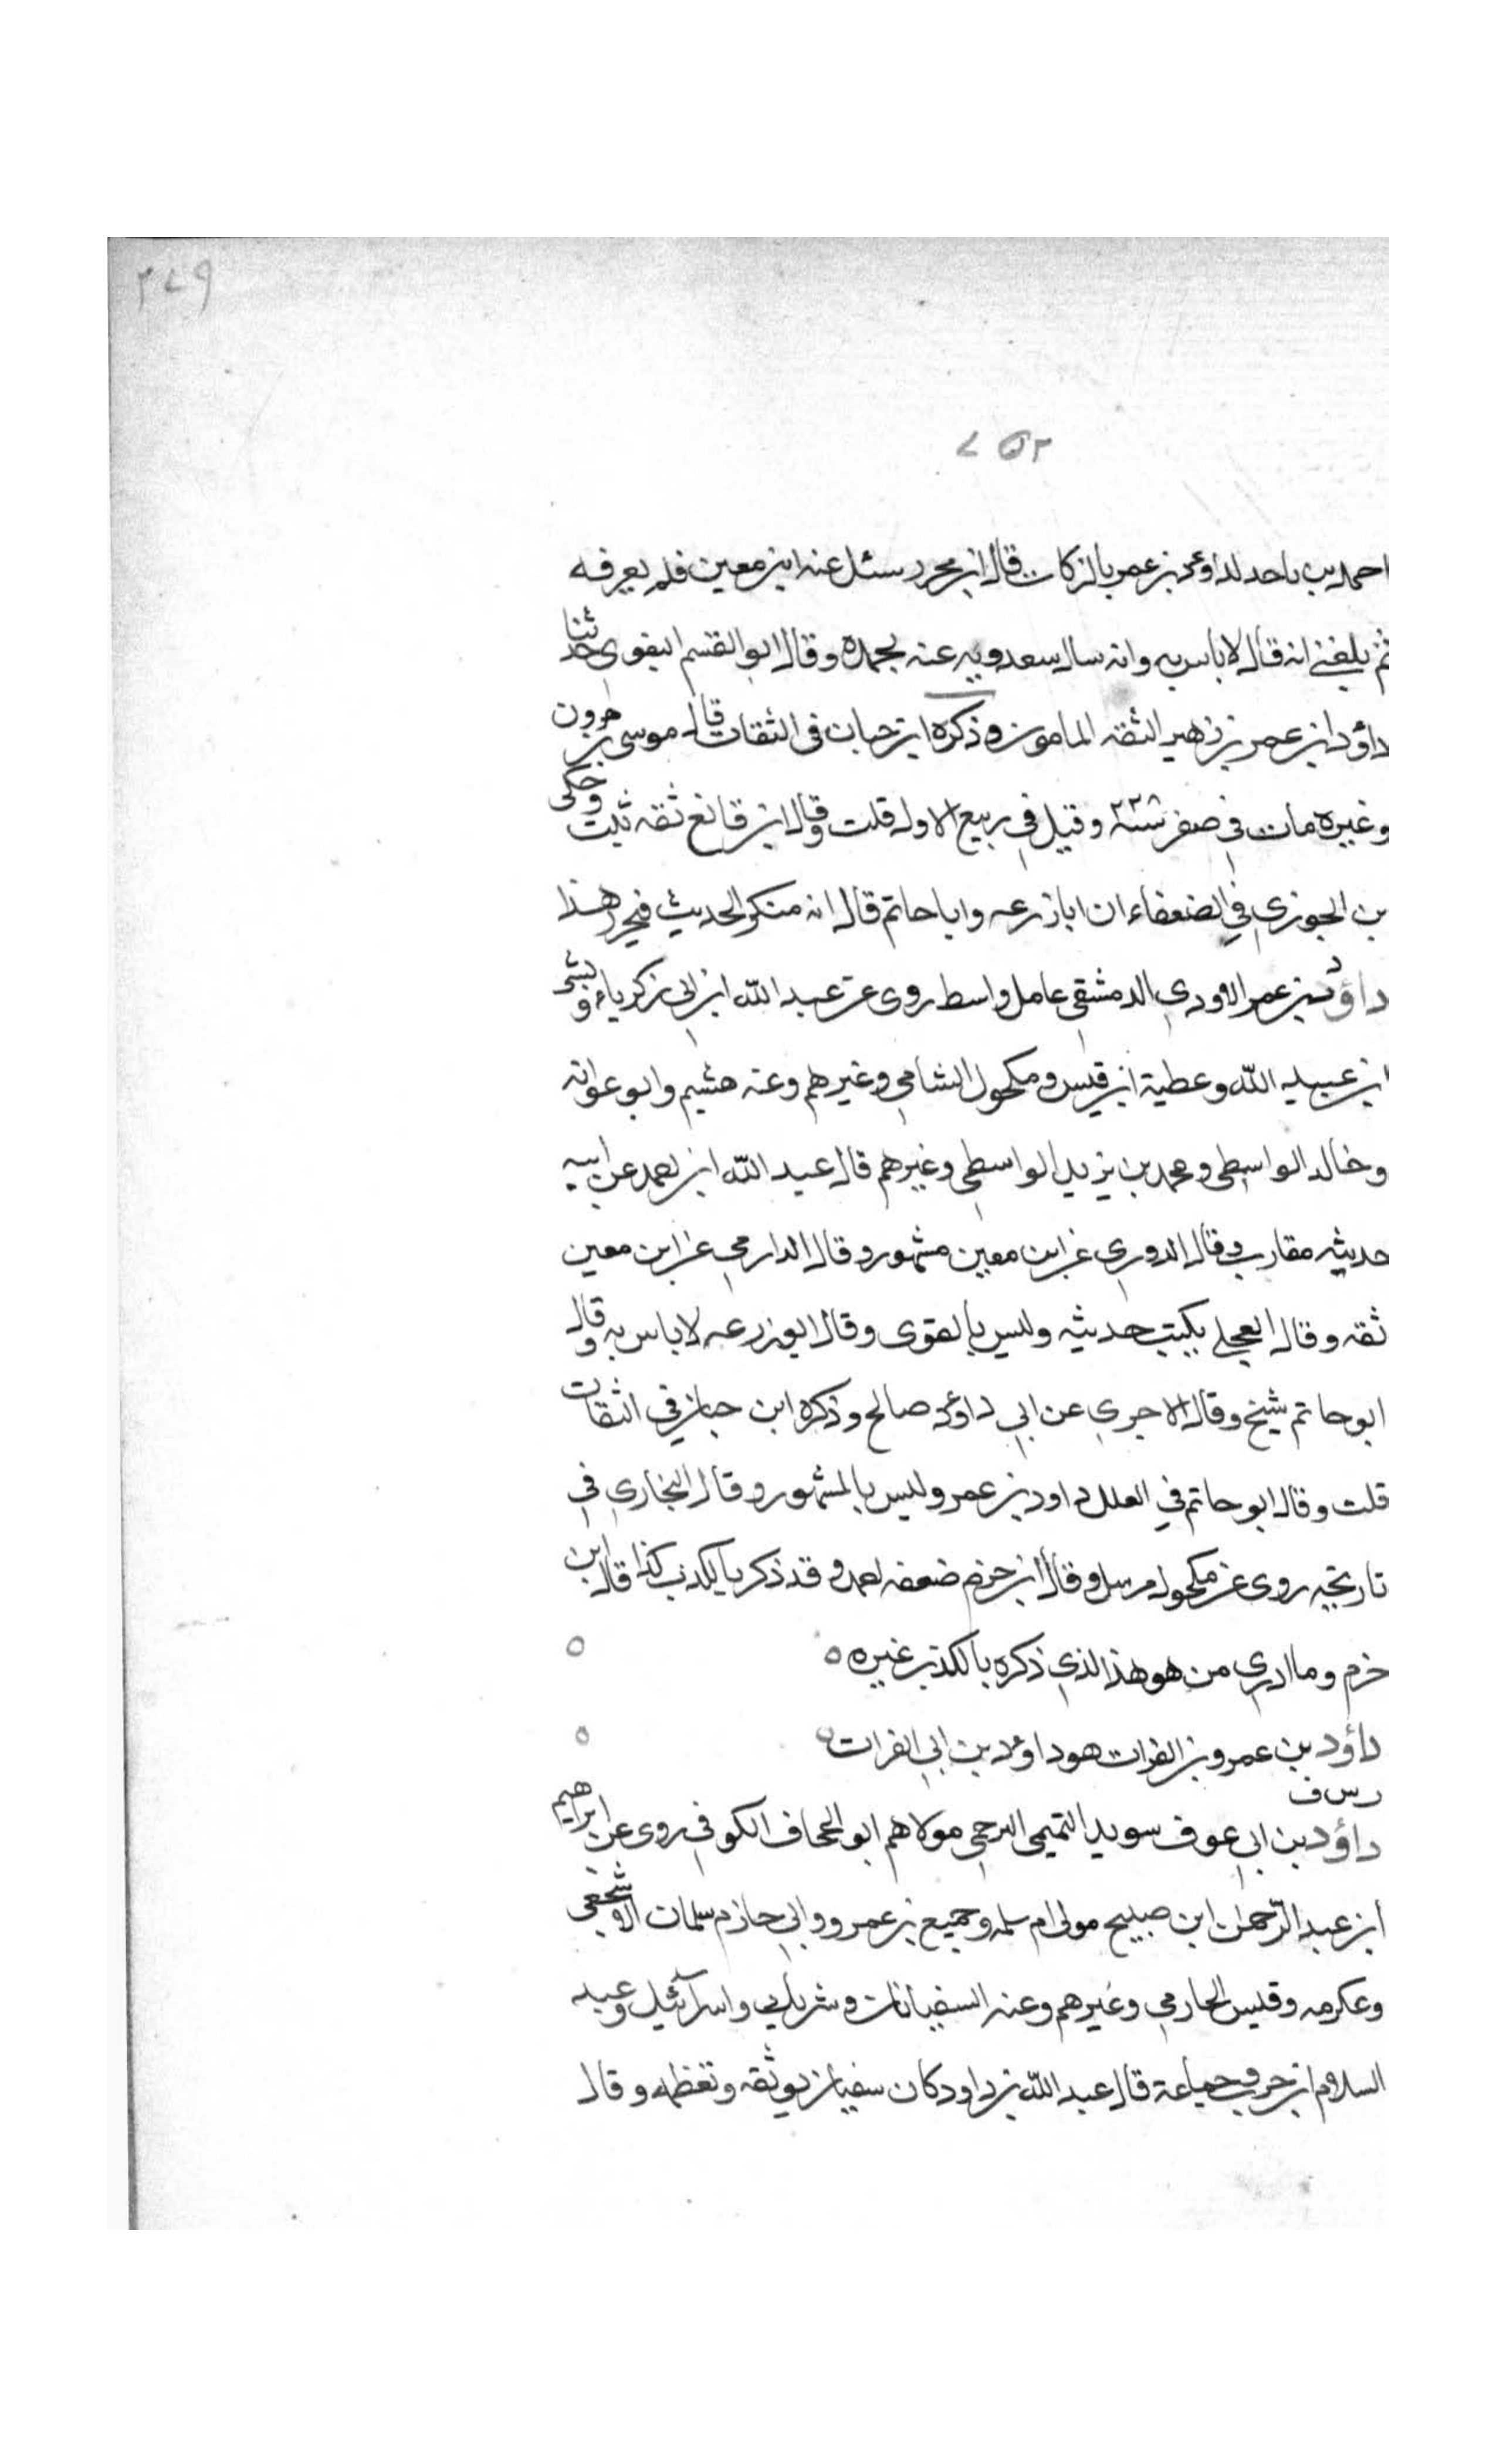 ٢٧٩
٢٥٢ ٧
احمد بن ياخد لداود بن عمر بالركاب قال ابن محرز سئل عنه ابن معين فلم يعرفه
ثم بلغني انه قال لا باس به وانه سال سعدويه عنه بحمده وقال ابو القسم البغوي حدثنا
داؤد ابن عمر بن زهير الثقه المامون وذكره ابن حبان في الثقات قال موسى بن هرون
وغيره مات في صفر سنة ٢٢٨ وقيل في ربيع الاول قلت وقال ابن قانع ثقه ثبت وحكى
بن الجوزي في الضعفاء ان ابا زرعه وابا حاتم قال انه منكر الحديث فيحرر هذا
د
داؤد بن عمر الاودي الدمشقي عامل واسط روى عن عبد الله ابن ابي زكرياء وبشر
ابن عبيد الله وعطية ابن قيس ومكحول الشامي وغيرهم وعنه هشيم وابو عوانه
وخالد الواسطي ومحمد بن يزيد الواسطي وغيرهم قال عبد الله ابن احمد عن ابيه
حديثه مقارب وقال الدوري عن ابن معين مشهور وقال الدارمي عن ابن معين
ثقه وقال العجلي يكتب حديثه وليس بالقوى وقال ابو زرعه لا باس به وقال
ابو حاتم شيخ وقال الاجري عن ابي داود صالح وذكره ابن حبان في الثقات
قلت وقال ابو حاتم في العلل داود بن عمر وليس بالمشهور وقال البخاري في
تاريخيه روى عن مكحول مرسل وقال ابن حزم ضعفه احمد وقد ذكر بالكذب كذا قال ابن
حزم وما ادري من هو هذا الذي ذكره بالكذب غيره
داؤد بن عمرو بن الفرات هو داود بن ابي الفرات
ر س ف
داؤد بن ابي عوف سويد التميمي البرجمي مولاهم ابو الجحاف الكوفي روى عن ابراهيم
ابن عبد الرحمن ابن صبيح مولى ام سلمه وجميع بن عمرو وابي حازم سلمان الاشجعي
وعكرمه وقيس الخارمي وغيرهم وعنه السفيانان وشريك واسرآئيل وعبد
السلام ابن حرب وجماعة قال عبد الله بن داود كان سفيان يوثقه وتعظمه وقال